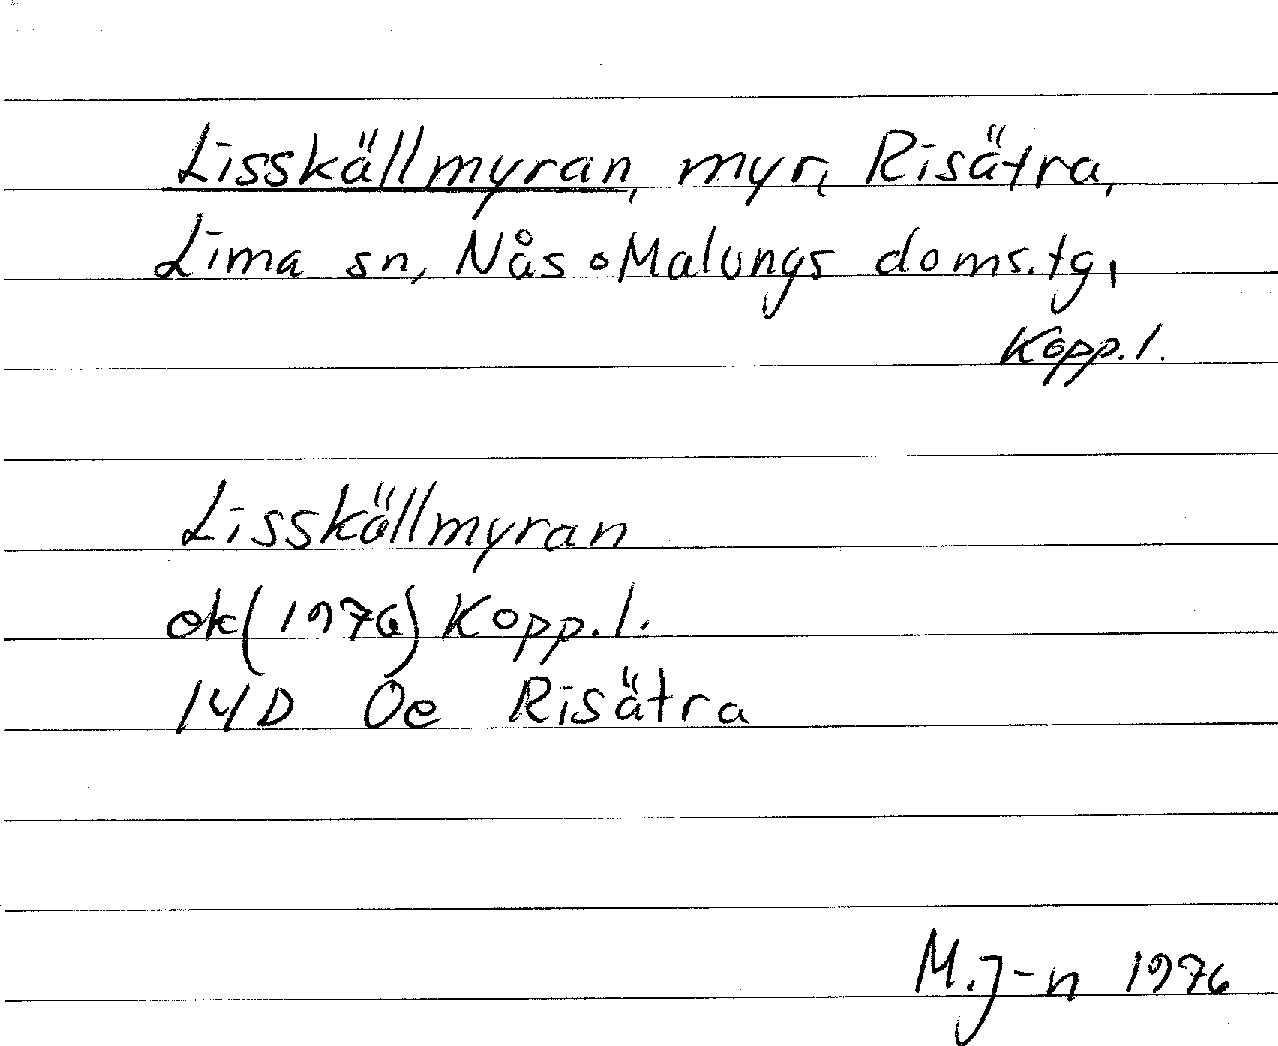 Lisskällmyran, myr, Risätra,
Lima sn, Nås o Malungs doms.tg,
Kopp.l.
Lisskällmyran
ek(1976) Kopp.l.
14D 0e Risätra
M.J-n 1976